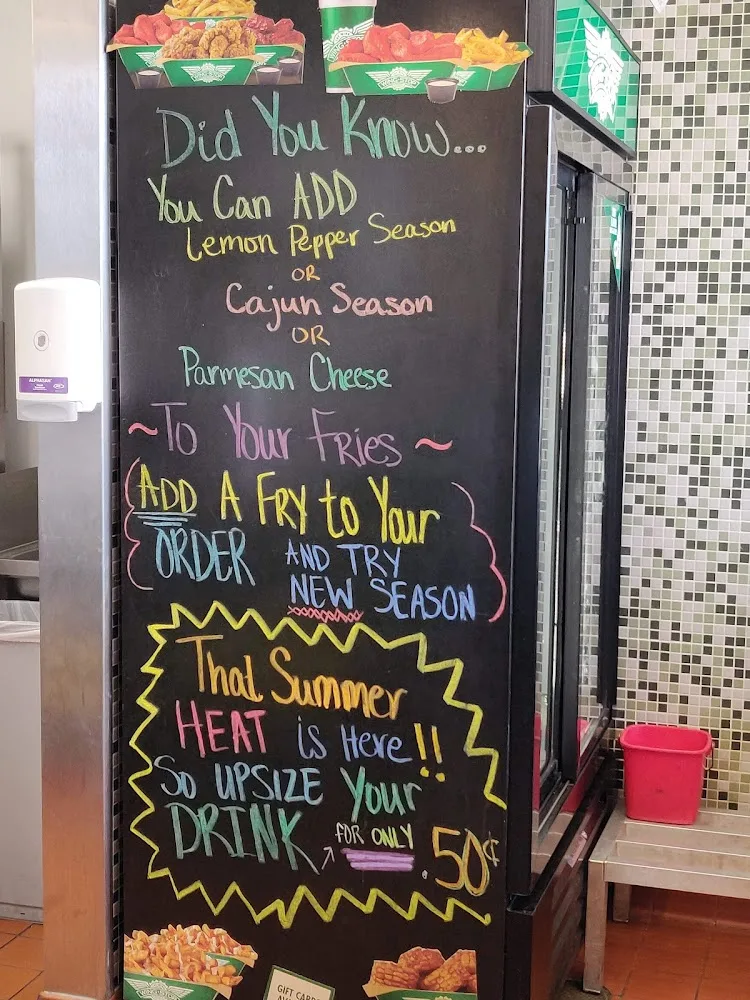 Did You Know...
You Can ADD
Lemon Pepper Season
OR
Cajun Season
OR
Parmesan Cheese
~To Your Fries~
ADD A FRY to Your
ORDER AND TRY
NEW SEASON
That Summer
HEAT is Here!!
So UPSIZE Your
DRINK FOR ONLY .50¢
GIFT CARDS